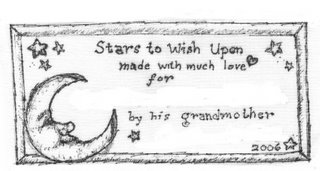 Stars to Wish Upon
made with much love
for
by his grandmother
2006